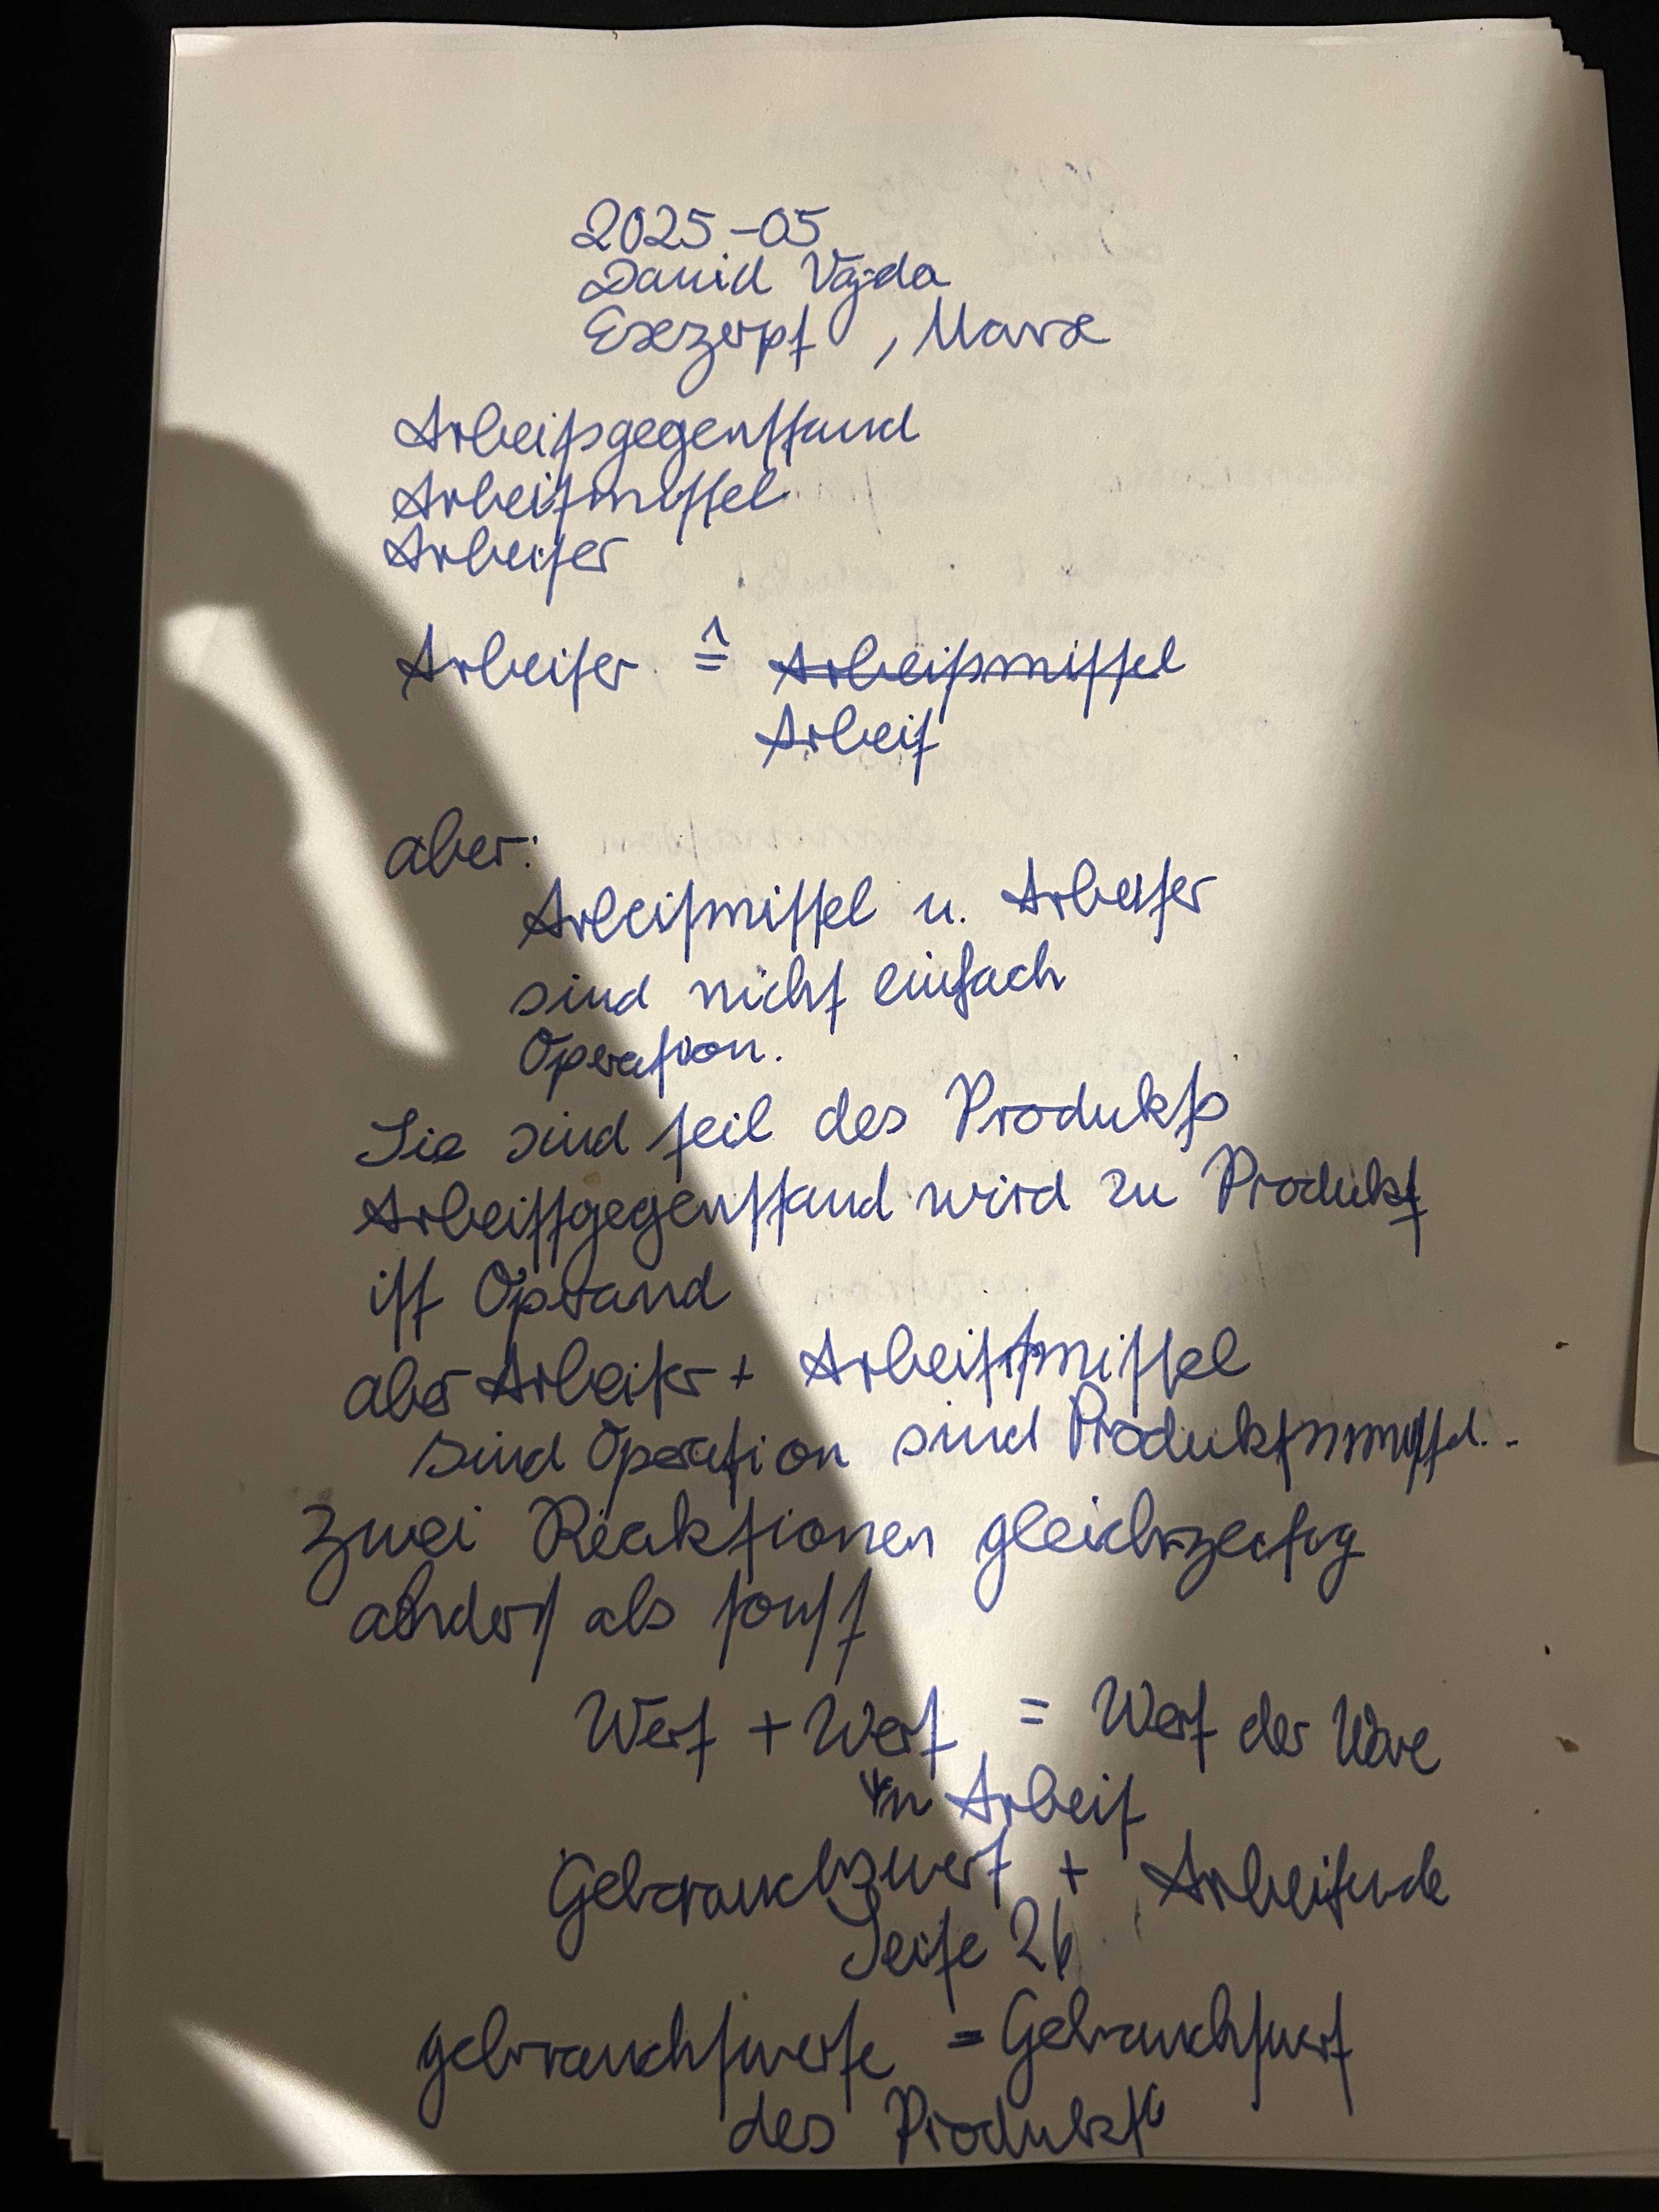 2025-05
David Vajda
Exzerpt, Marx
Arbeitsgegenstand
Arbeitsmittel
Arbeiter
Arbeiter ≙ Arbeitsmittel
Arbeit
aber:
Arbeitsmittel u. Arbeiter
sind nicht einfach
Operation.
Sie sind teil des Produkts
Arbeitsgegenstand wird zu Produkt
iff Operand
aber Arbeiter + Arbeitsmittel
sind Operation sind
Zwei Reaktionen gleichzeitig
anders als sonst
Wert + Wert = Wert der Ware
Arbeit
Gebrauchswert + Arbeitende
Seite 26
gebrauchswerte = Gebrauchswert
des Produkts